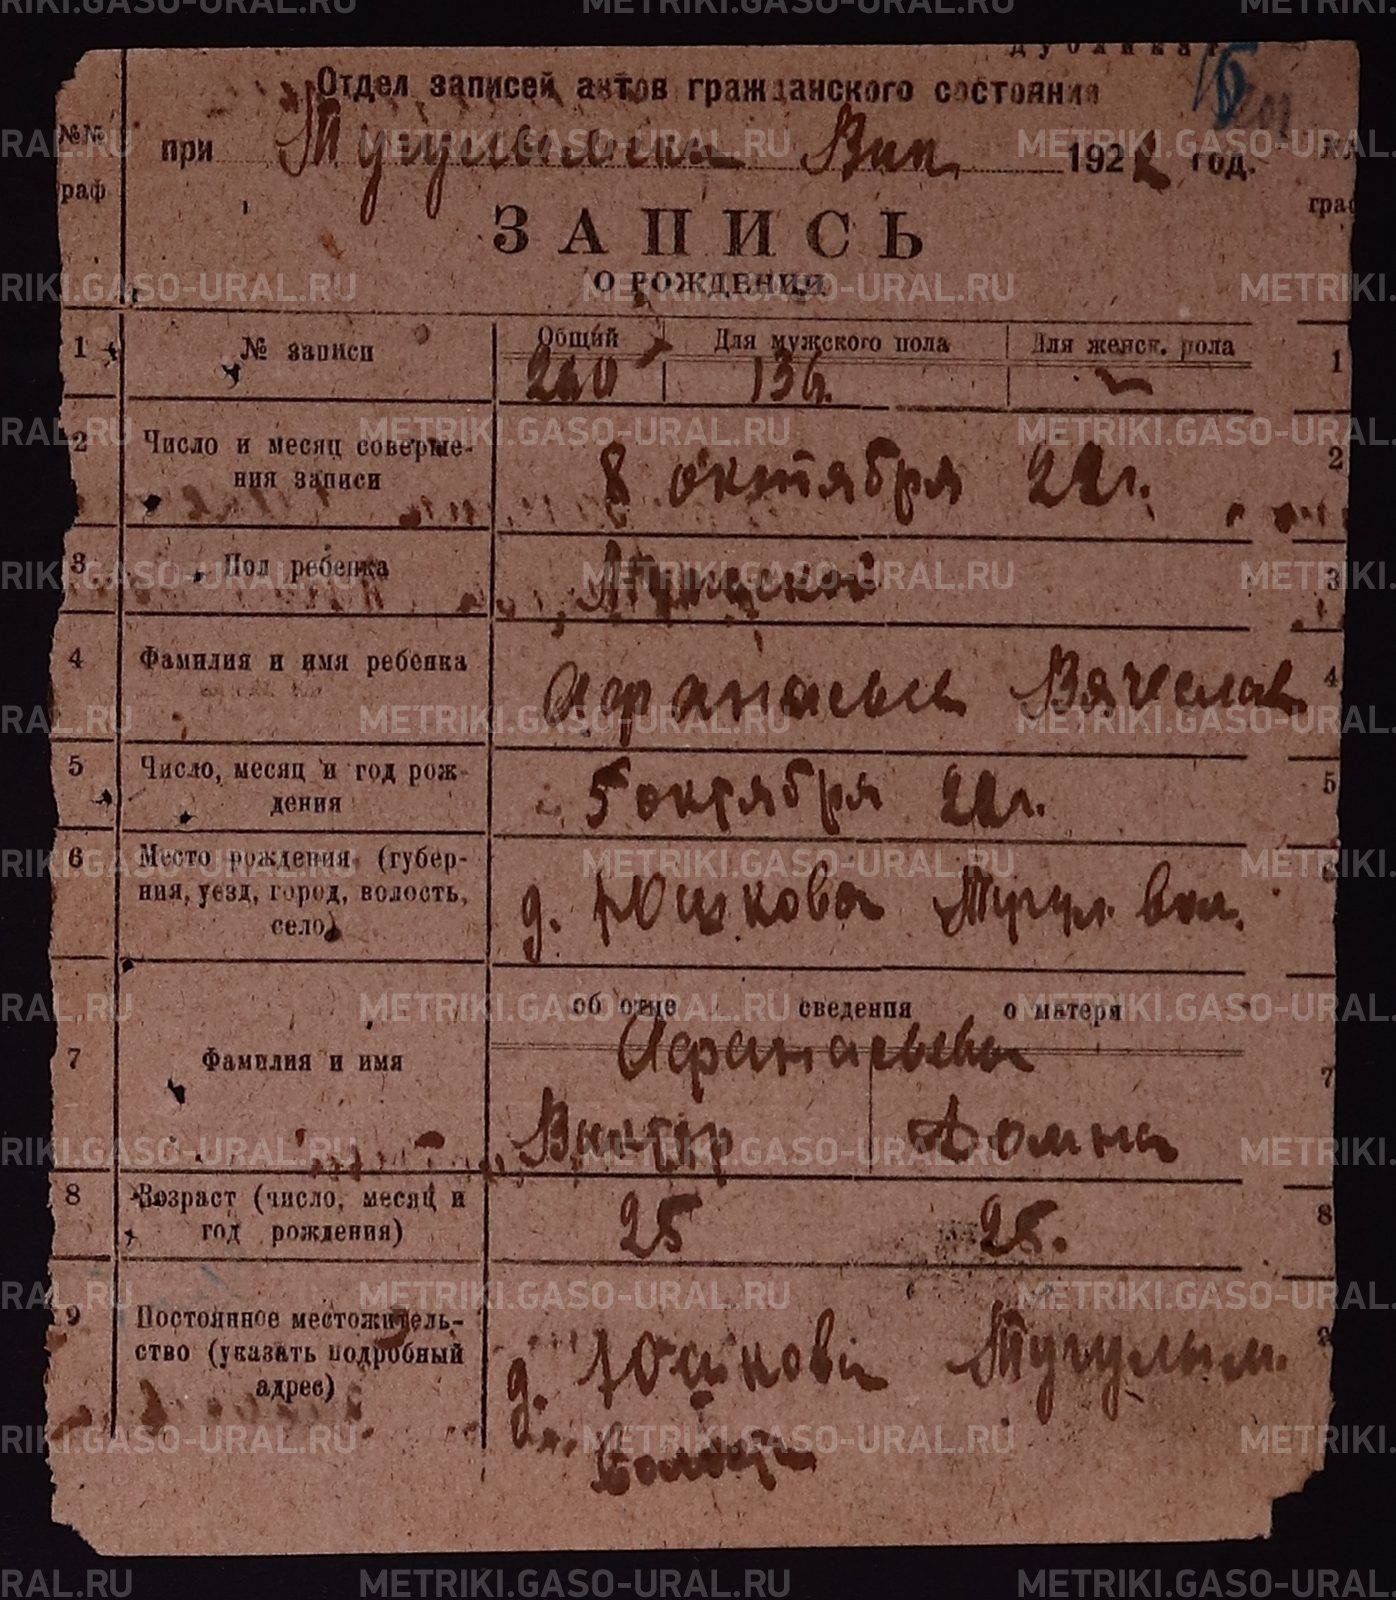 дубликат
Отдел записей актов гражданского состояния
№№ граф
при Тугулымском Вик. 1922 год.
ЗАПИСЬ
О РОЖДЕНИИ
1 № записи Общий Для мужского пола Для женск. пола 1
240 136. —
2 Число и месяц соверше- 2
ния записи 8 октября 22 г.
3 Пол ребенка Мужской 3
4 Фамилия и имя ребенка Афанасьев Вячеслав 4
5 Число, месяц и год рож- 5
дения 5 октября 22 г.
6 Место рождения (губер- 6
ния, уезд, город, волость, д. Юшкова Тугул. вол.
село)
об отце сведения о матери
Афанасьевы
7 Фамилия и имя 7
Виктор Домна
8 Возраст (число, месяц и 8
год рождения) 25 25.
9 Постоянное местожитель- 9
ство (указать подробный д. Юшкова Тугулым.
адрес)
волости
METRIKI.GASO-URAL.RU